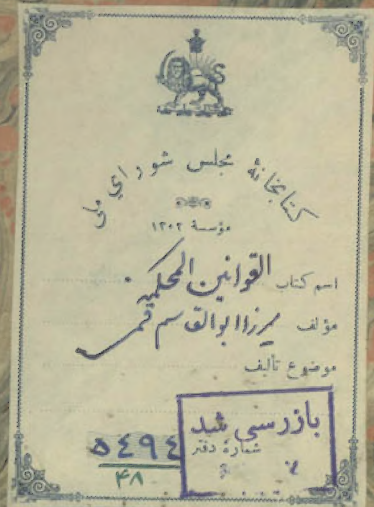 کتابخانهٔ مجلس شورای ملی
مؤسسهٔ ۱۳۰۲
اسم کتاب القوانین المحکمه
مؤلف میرزا ابوالقاسم قمی
موضوع تألیف
بازرسی شد
شمارهٔ دفتر
۵۴۹۴
۴۸